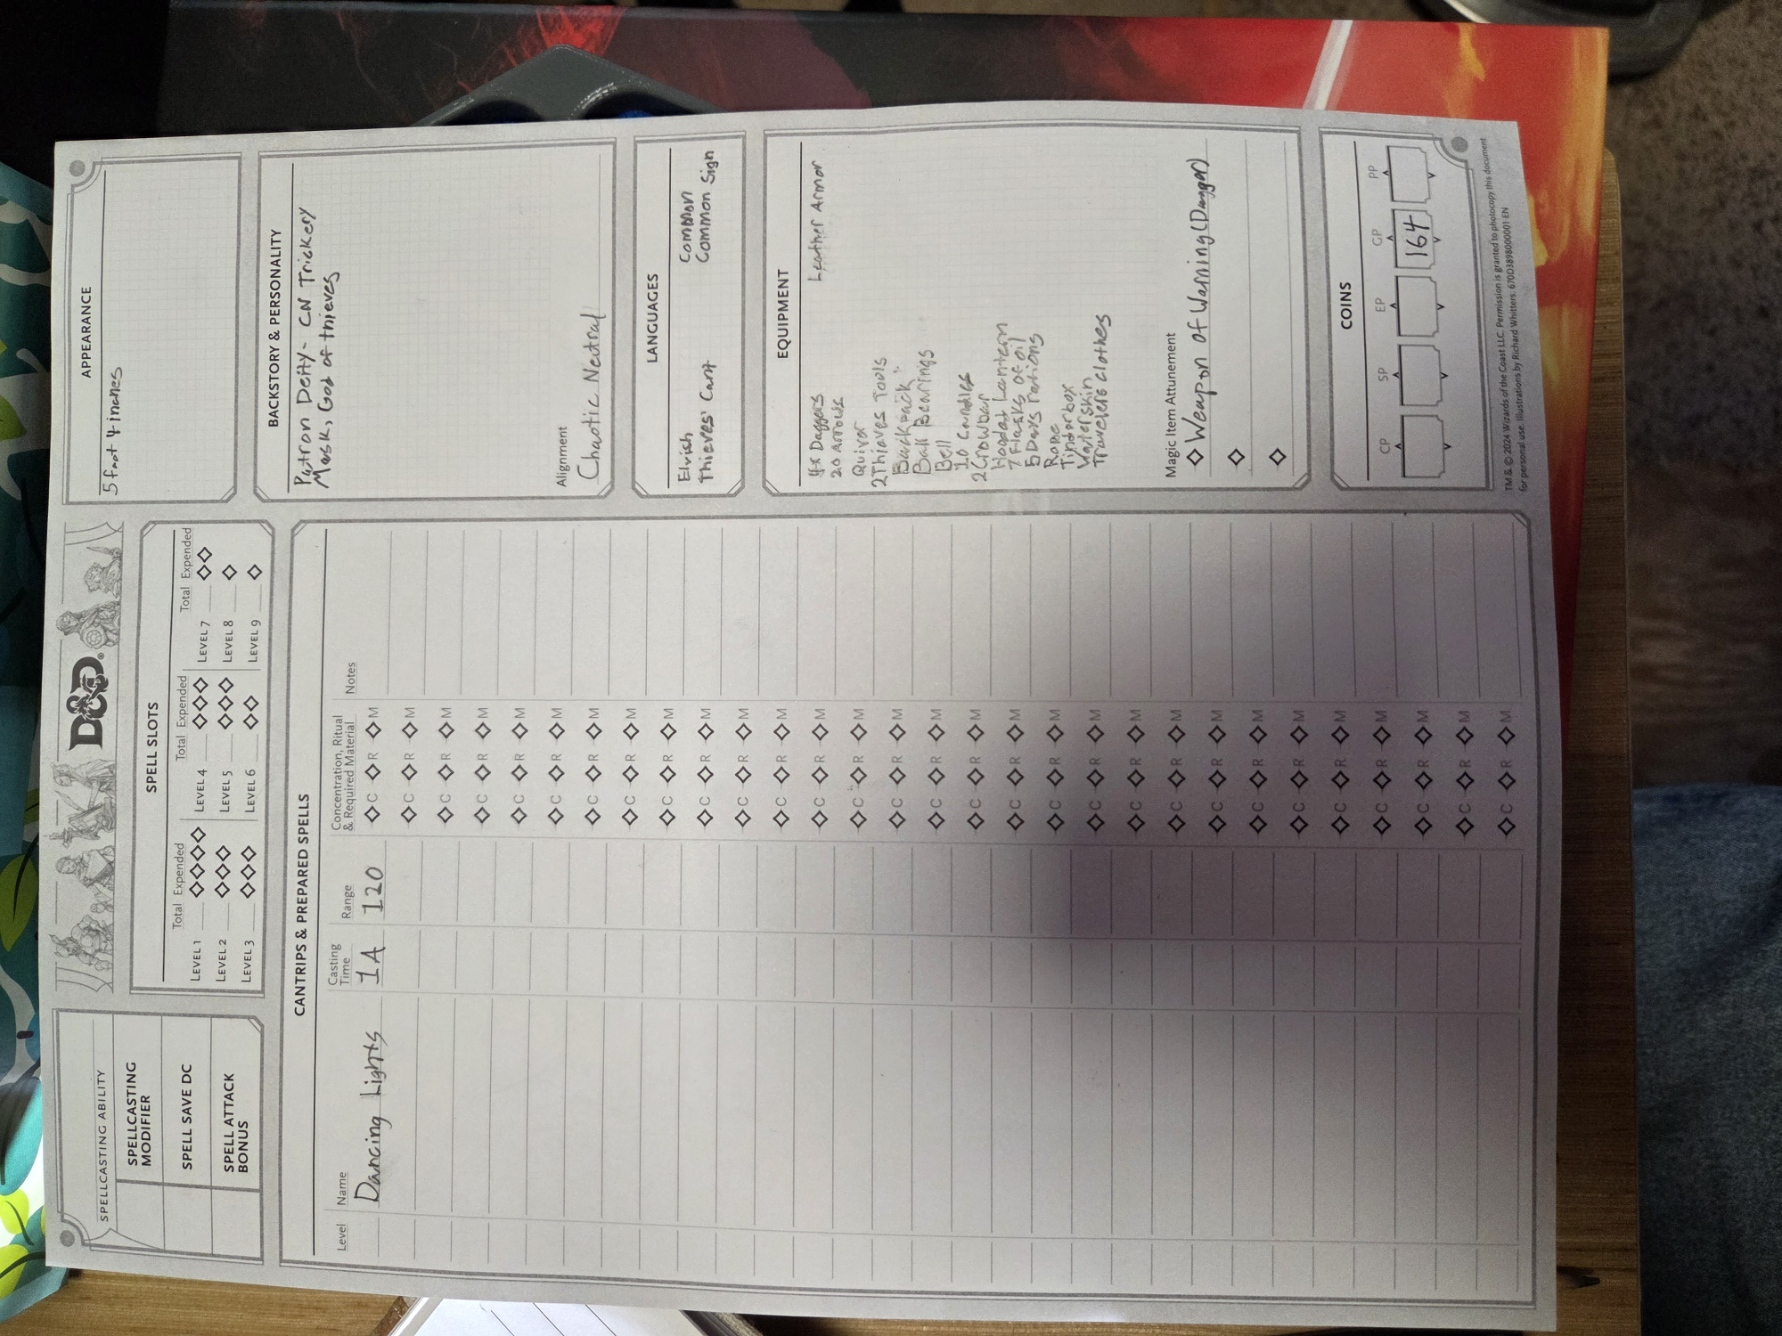 SPELLCASTING ABILITY
SPELLCASTING
MODIFIER
SPELL SAVE DC
SPELL ATTACK
BONUS
D&D
SPELL SLOTS
Total Expended Total Expended Total Expended
LEVEL 1 LEVEL 4 LEVEL 7
LEVEL 2 LEVEL 5 LEVEL 8
LEVEL 3 LEVEL 6 LEVEL 9
CANTRIPS & PREPARED SPELLS
Level Name Casting Time Range Concentration, Ritual & Required Material Notes
Dancing Lights 1A 120 C R M
C R M
C R M
C R M
C R M
C R M
C R M
C R M
C R M
C R M
C R M
C R M
C R M
C R M
C R M
C R M
C R M
C R M
C R M
C R M
C R M
C R M
C R M
C R M
C R M
C R M
C R M
C R M
C R M
C R M
APPEARANCE
5 foot 4 inches
BACKSTORY & PERSONALITY
Patron Deity- CN Trickery
Mask, God of thieves
Alignment
Chaotic Neutral
LANGUAGES
Elvish Common
Thieves' Cant Common Sign
EQUIPMENT
4x Daggers Leather Armor
20 Arrows
Quiver
2 Thieves Tools
Backpack
Ball Bearings
Bell
10 Candles
2 Crowbar
Hooded Lantern
7 Flasks of oil
5 Days rations
Rope
Tinderbox
Waterskin
Travelers clothes
Magic Item Attunement
Weapon of Warning (Dagger)
COINS
CP SP EP GP PP
164
TM & © 2024 Wizards of the Coast LLC. Permission is granted to photocopy this document
for personal use. Illustrations by Richard Whitters. 670D3898000001 EN